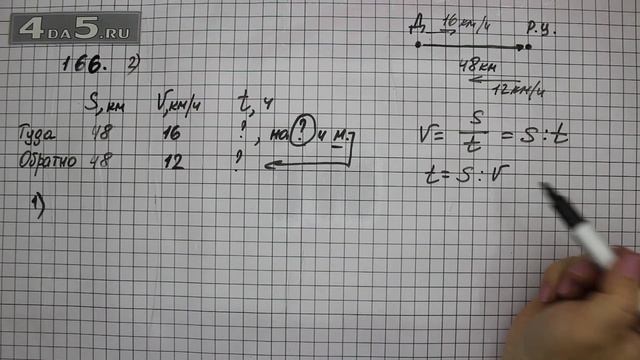 4DA5.RU
166. 2)
S, км V, км/ч t, ч
Туда 48 16 ?, на ? ч м.
Обратно 48 12 ?
1)
Д 16 км/ч Р.У.
48 км
12 км/ч
V = S/t = S : t
t = S : V